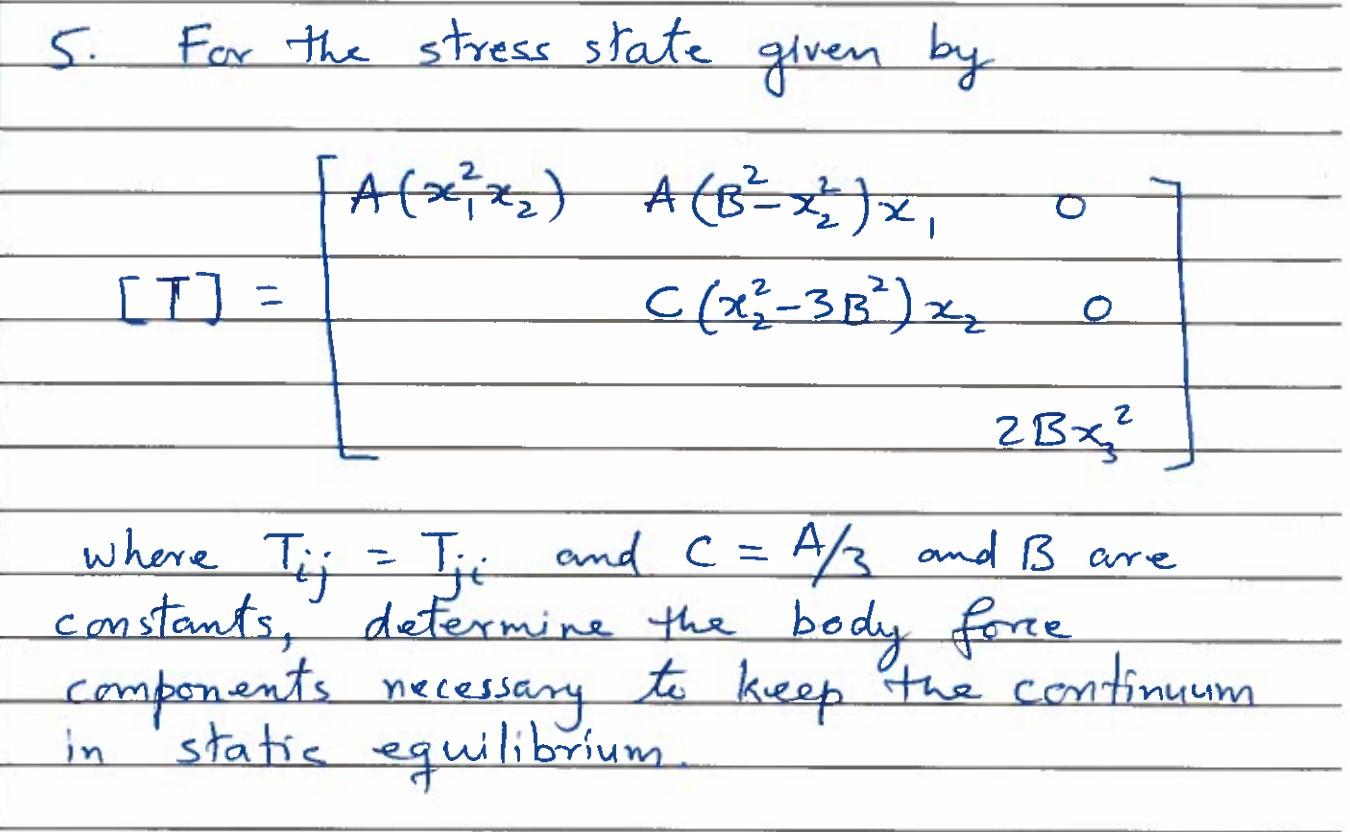 5. For the stress state given by
A(x₁²x₂) A(B²-x₂²)x₁ 0
[T] = C(x₂²-3B²)x₂ 0
2Bx₃²
where Tij = Tji and C = A/3 and B are
constants, determine the body force
components necessary to keep the continuum
in static equilibrium.